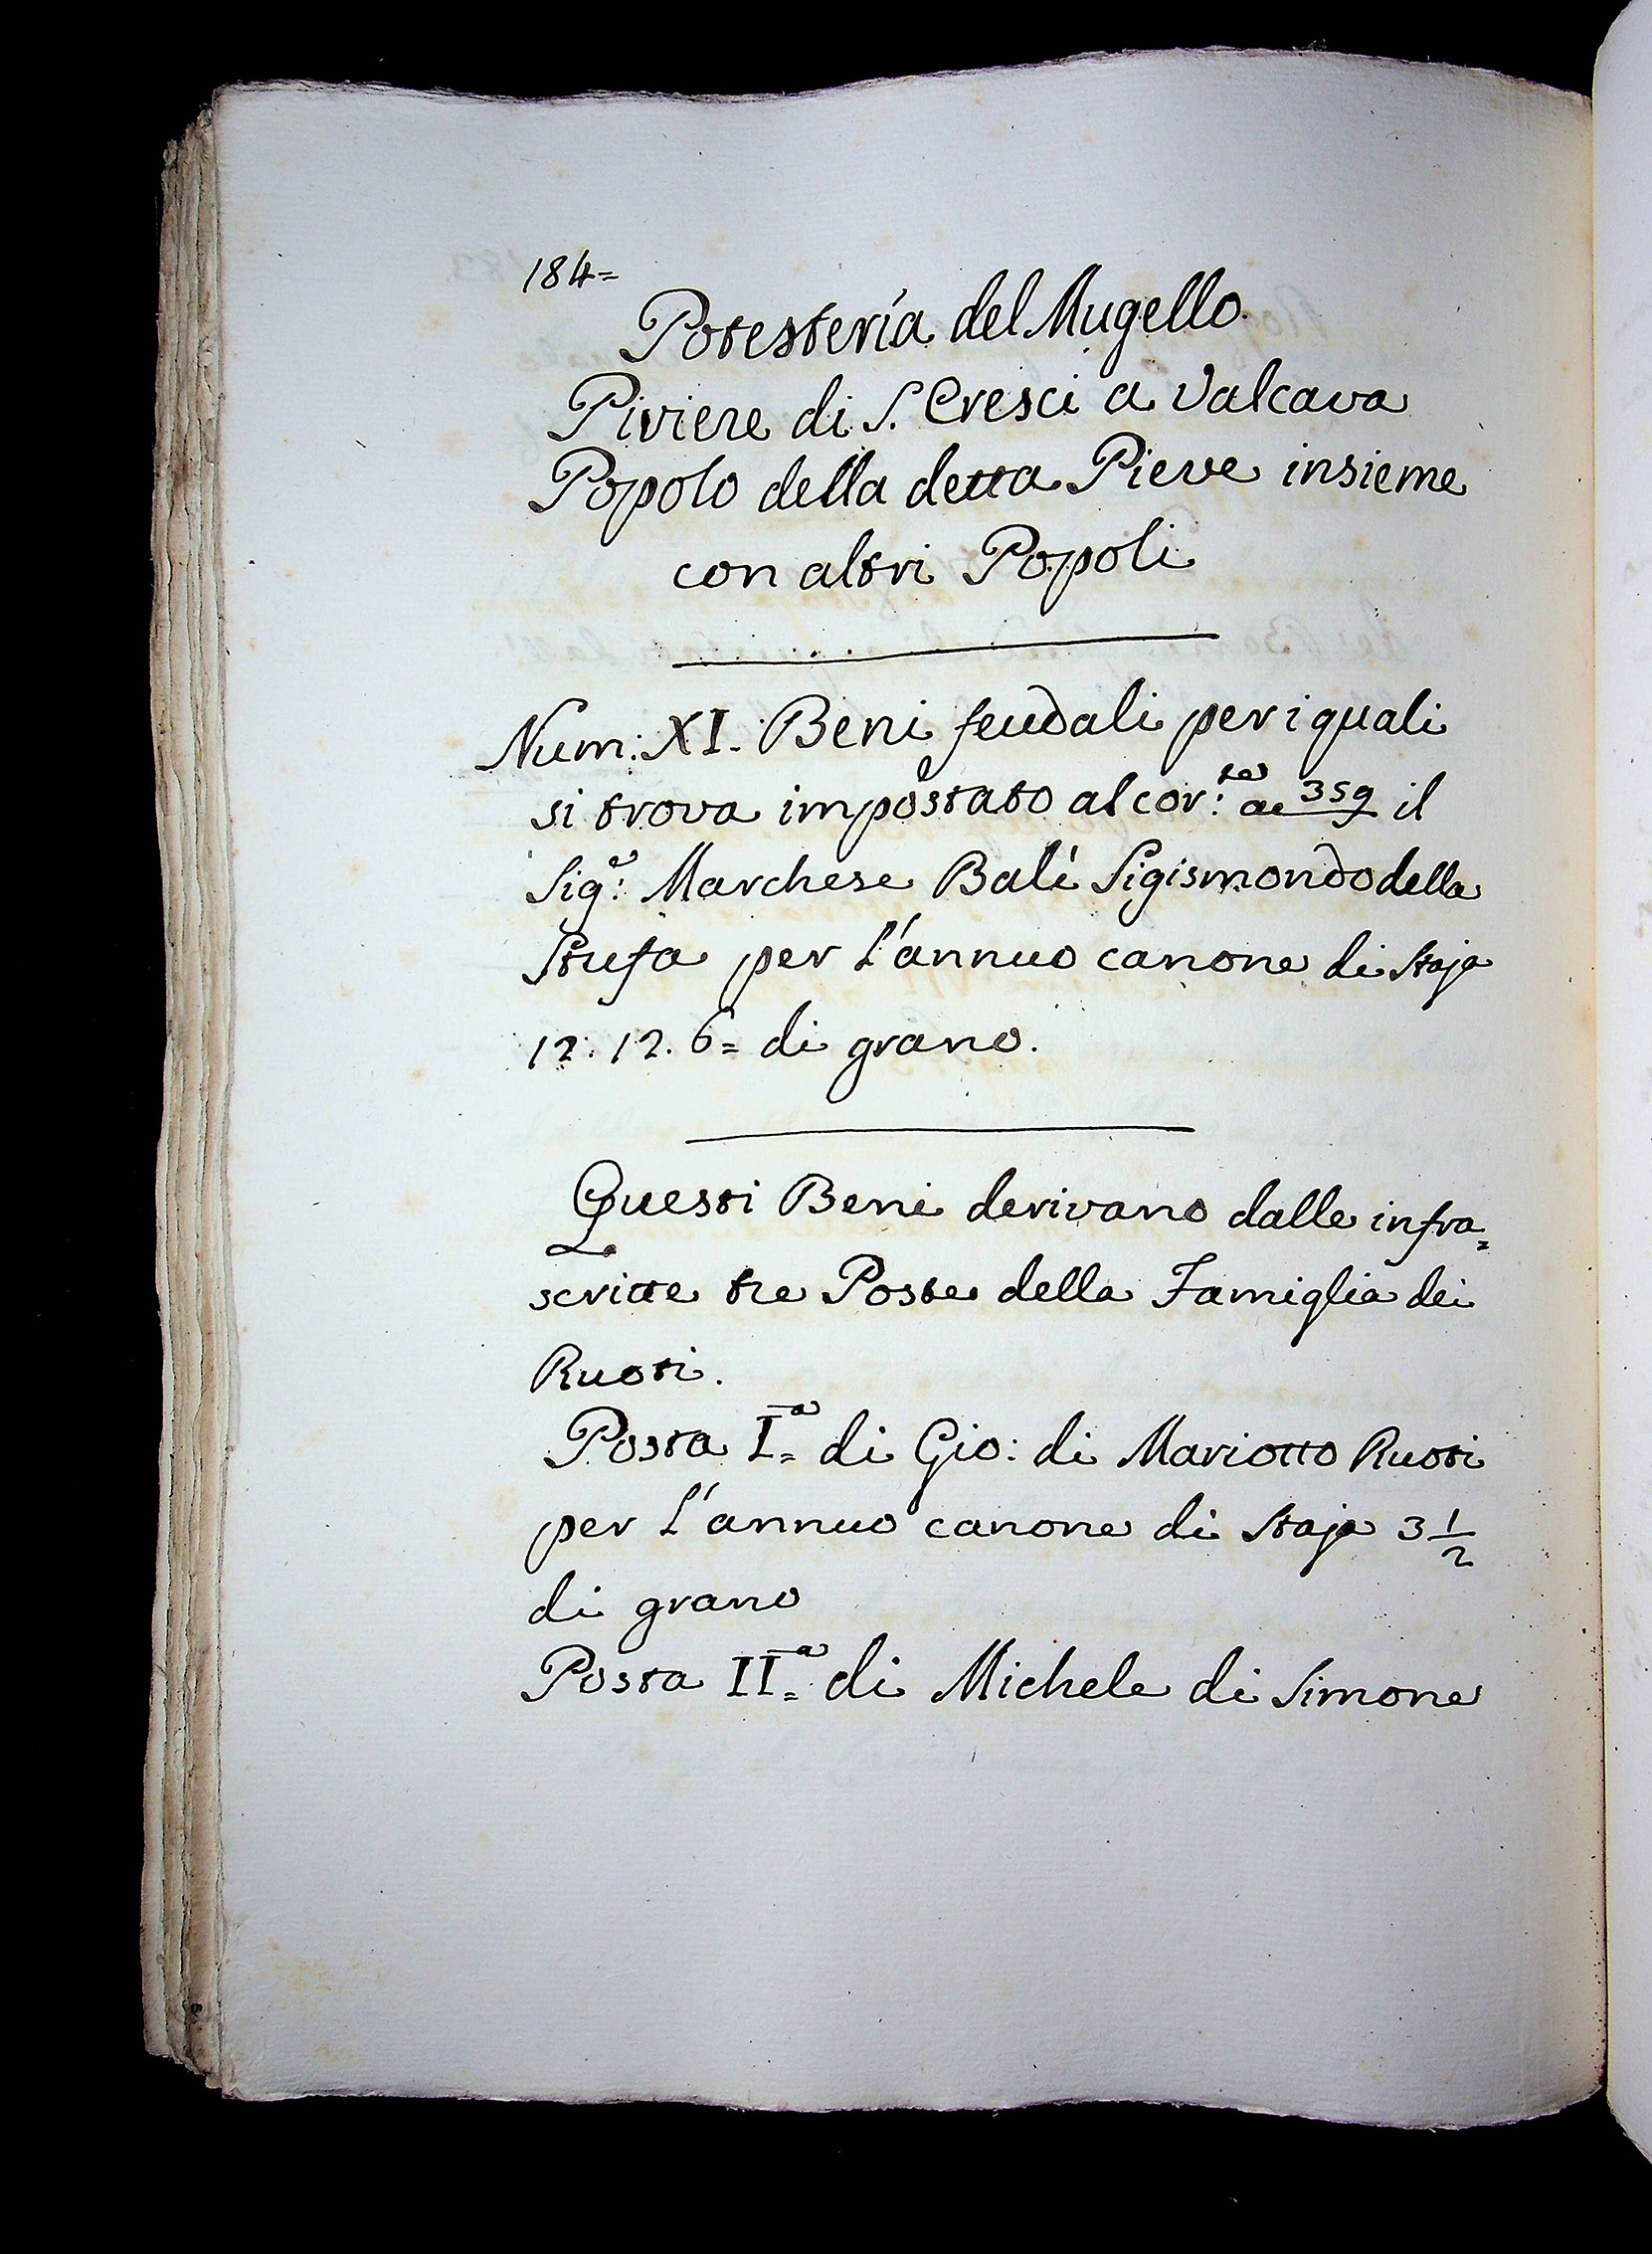 184=
Potesterìa del Mugello
Piviere di S. Cresci a Valcava
Popolo della detta Pieve insieme
con altri Popoli
Num: XI. Beni feudali per i quali
si trova impostato al cor:te a 359 il
Sig:e Marchese Balì Sigismondo della
Stufa per l'annuo canone di Staja
12. 12. 6= di grano.
Questi Beni derivano dalle infra=
scritte tre Poste della Famiglia dei
Ruoti.
Posta I=a di Gio: di Mariotto Ruoti
per l'annuo canone di Staja 3 1/2
di grano
Posta II=a di Michele di Simone